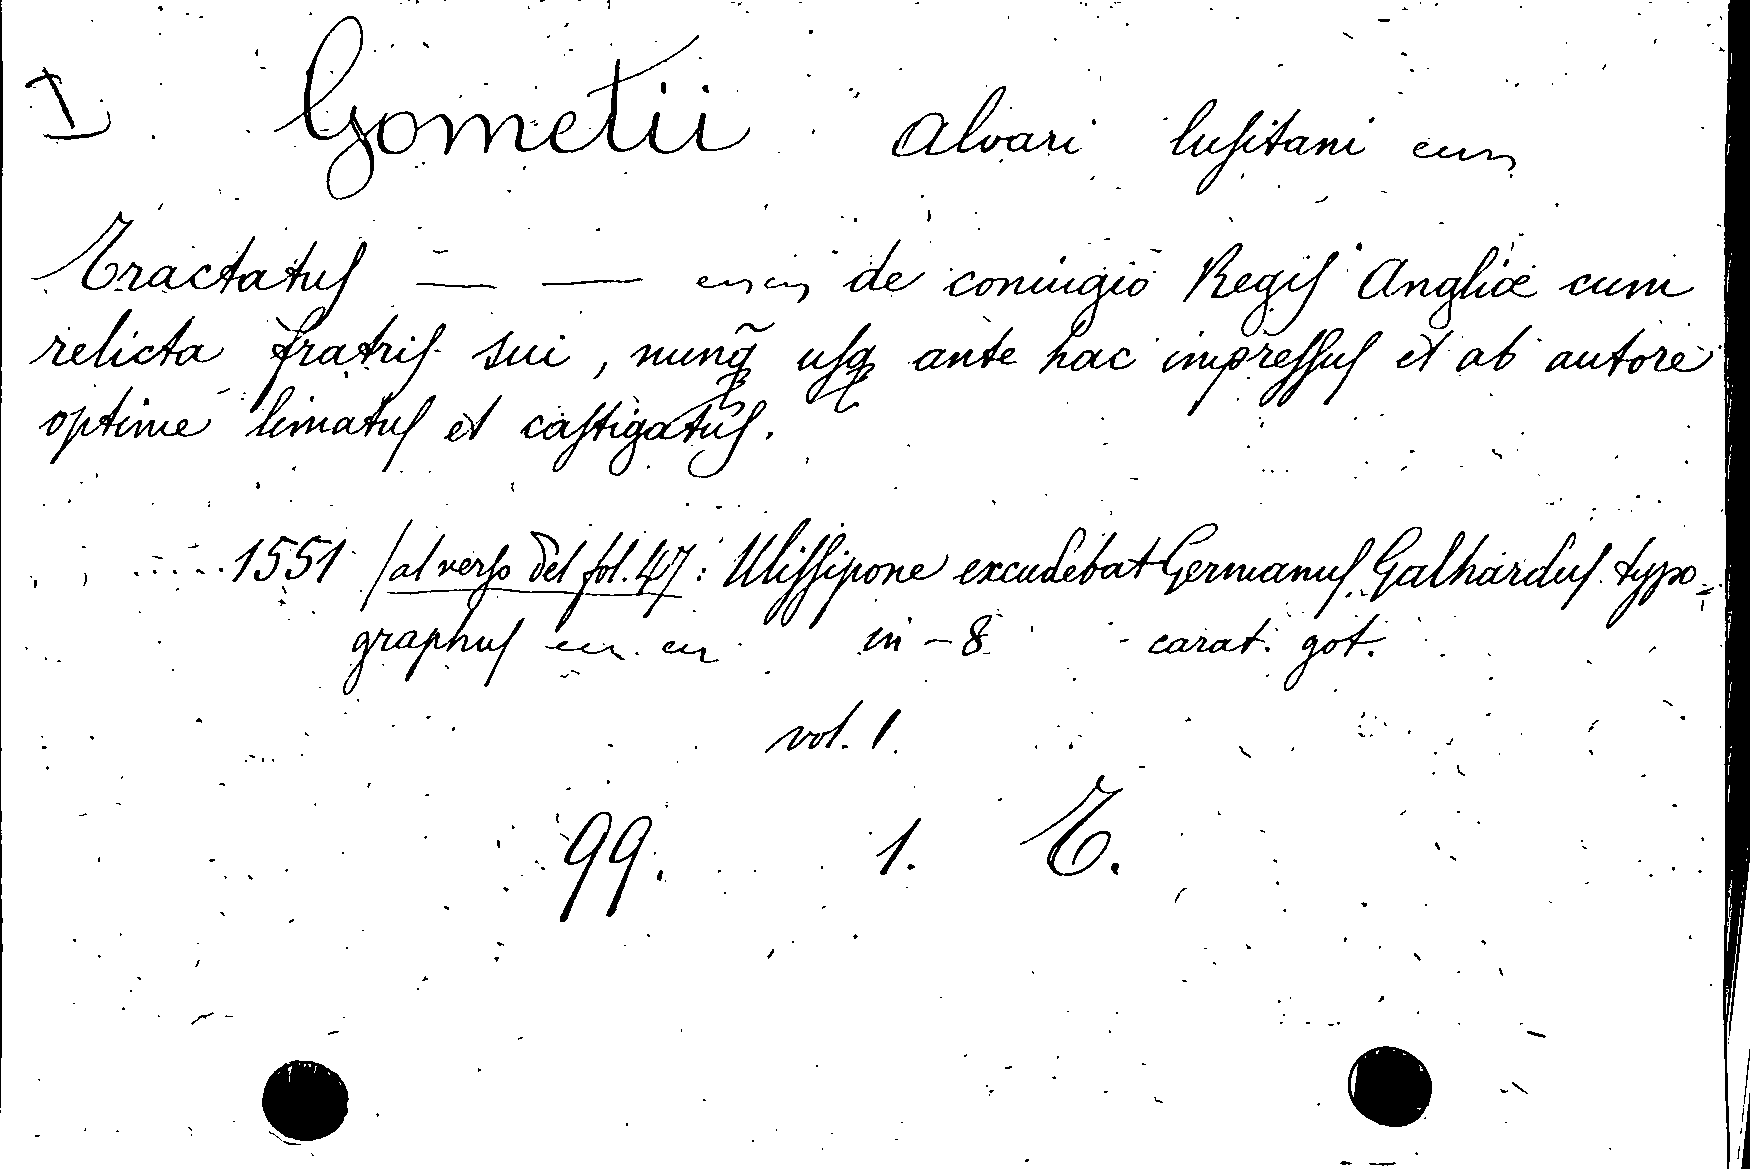 I Gometii Alvari luſitani
Tractatuſ — — de coniugio Regiſ Angliæ cum
relicta fratriſ sui, nunq̃ uſq ante hac impreſſuſ et ab autore
optime limatuſ et caſtigatuſ.
.....1551 /al verſo del fol. 47: Uliſſipone excudebat Germanuſ Galharduſ typo-
graphuſ in-8 carat. got.
vol. 1.
99. 1. T.